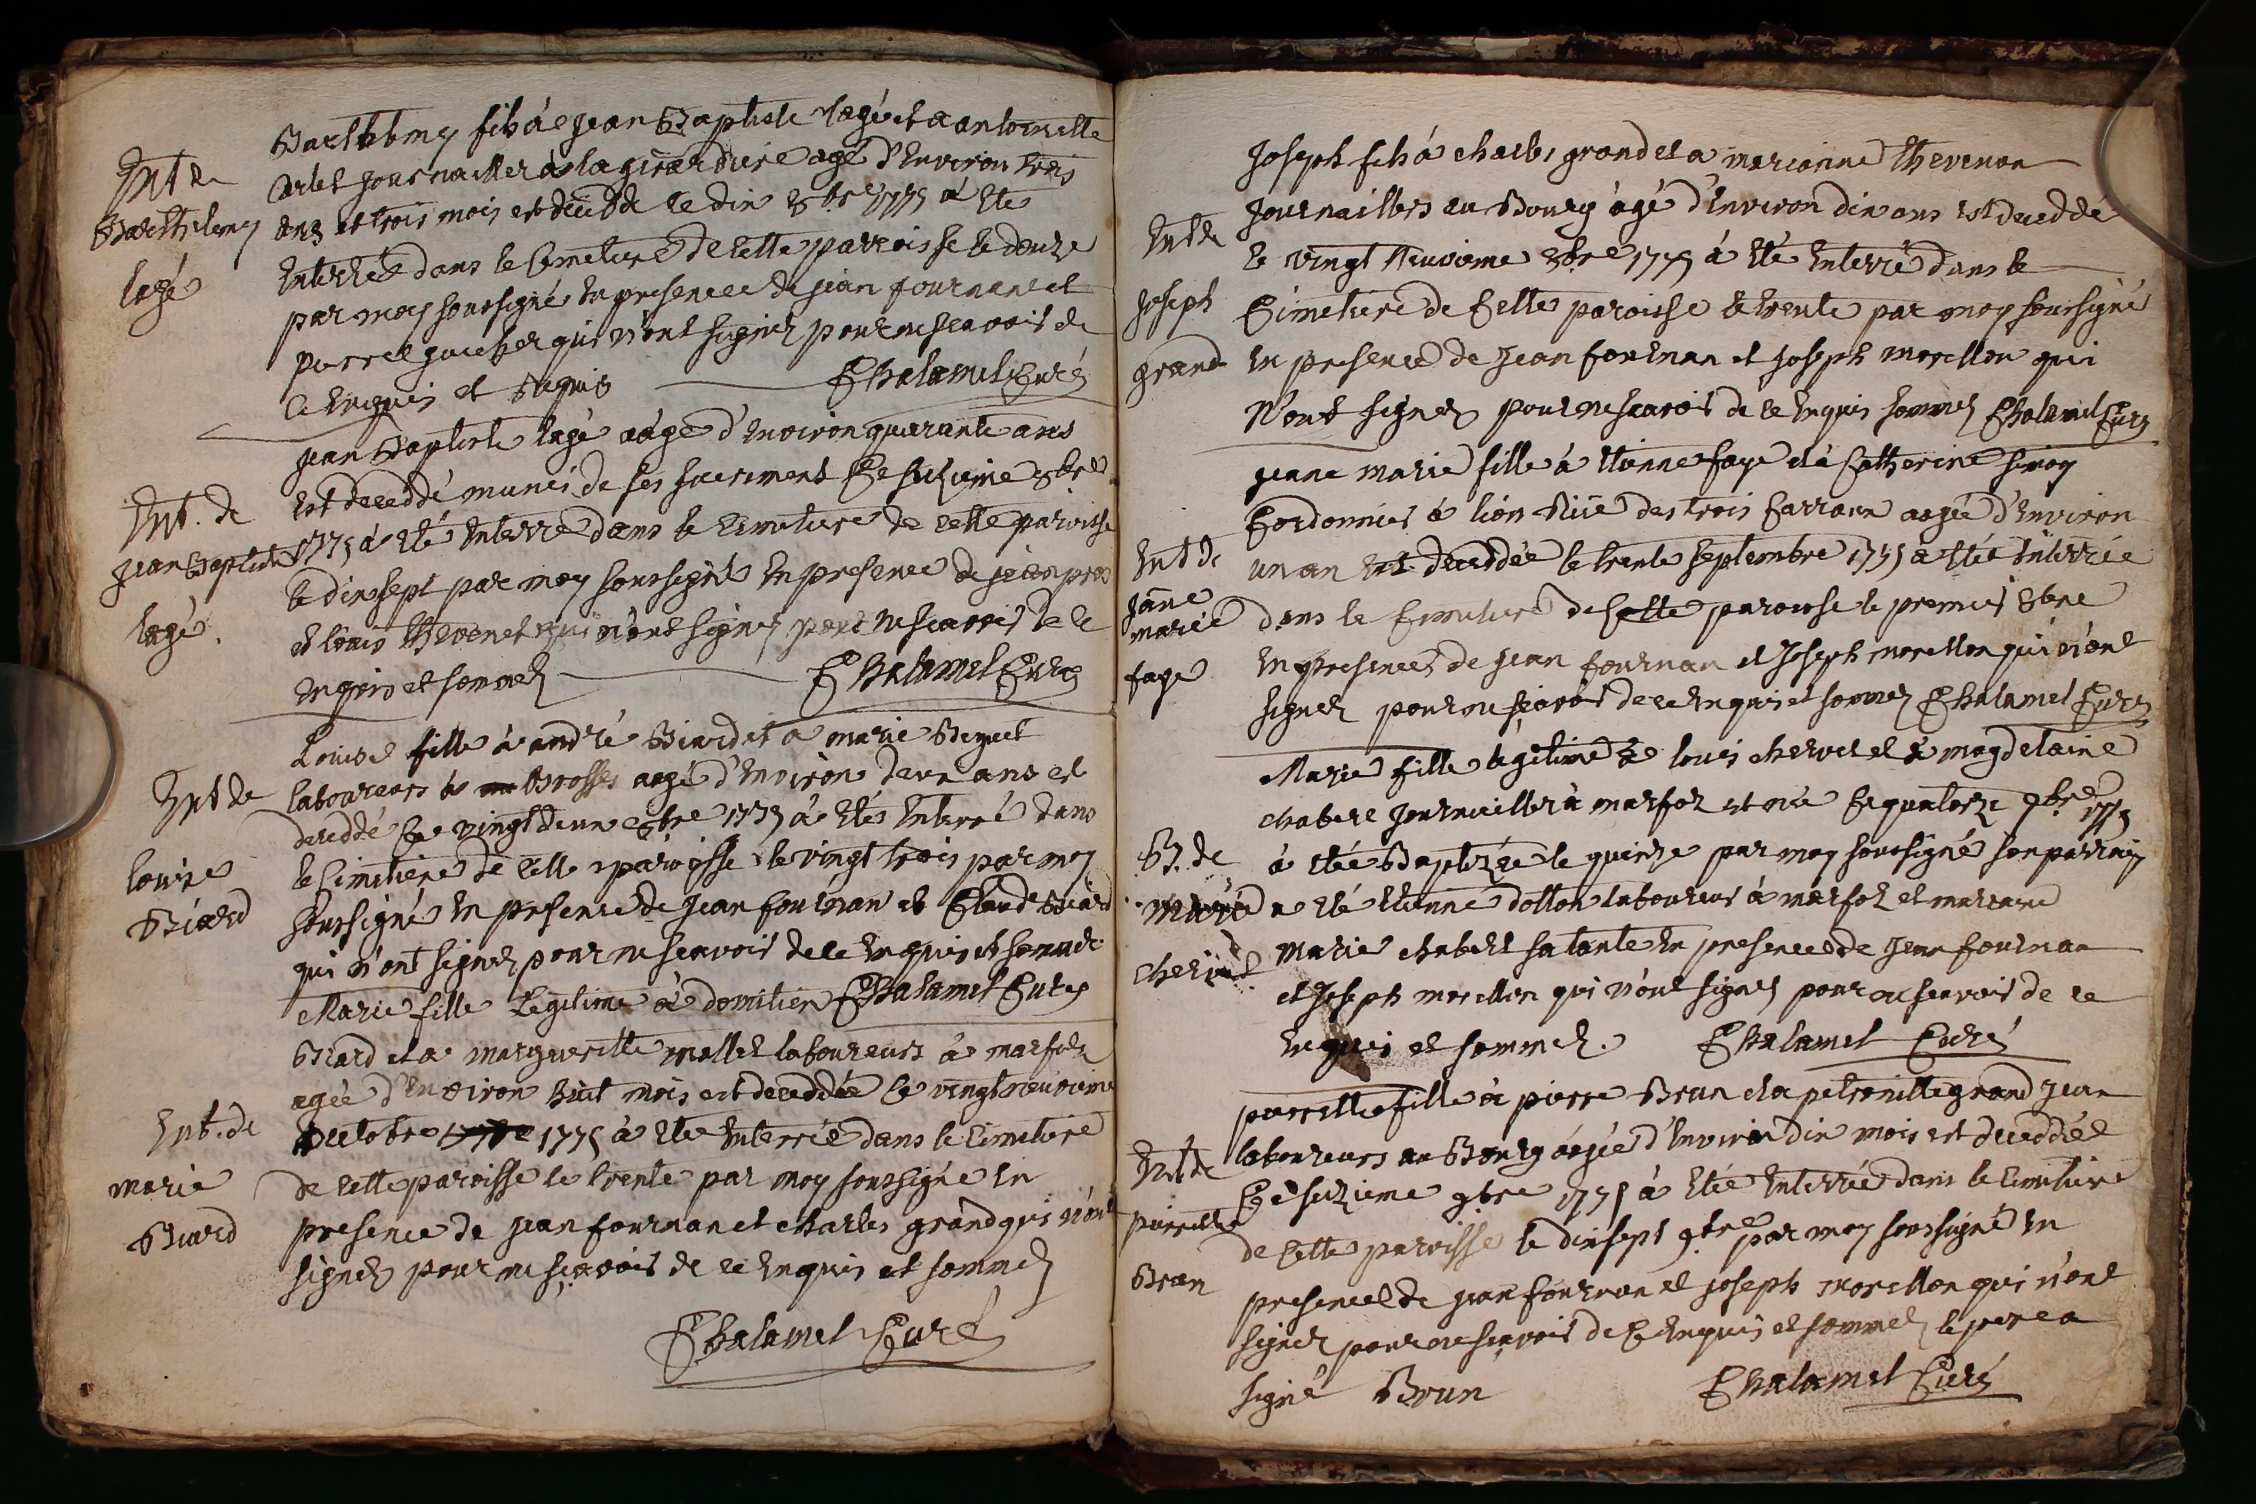 Int de
Barthelemy
lagé
Barthelemy fils à jean Baptiste lagé et a antoinette
arlet journallier a la girardiere agé d'Environ trois
ans et trois mois est décédé le dix 8bre 1775 a Eté
Enterré dans le Cimetiere de cette parroisse le douze
par moy soussigné En presence de jean fournan et
pierre gaucher qui n'ont signéz pour ne scavoir de
ce Enquis et Requis Chalamel Curé
Int. de
jean Baptiste
lagé.
jean Baptiste lagé aâgé d'Environ quarante ans
est deceddé munis de ses sacrements Ce seizieme 8bre
1775 à Eté Enterré dans le Cimetiere de cette paroisse
le dixsept par moy soussigné En presence de jean pras
et louis thevenet qui n'ont signéz pour ne scavoir de ce
Enquis et sommez Chalamel Curé
Int de
louise
Biard
Louise fille à andré Biard et a marie Bequet
laboureurs és Brosses aagé d'Environ deux ans est
deceddé Ce vingtdeux 8bre 1775 à Etés Enterré dans
le Cimetiere de cette paroisse le vingt trois par moy
soussigné En presence de jean fournan et Claud Biard
qui n'ont signez pour ne scavoir de ce Enquis et sommés
Chalamel Curé
Int. de
marie
Biard
Marie fille Legitime à domitien
Biard et a margueritte mallet laboureurs à marfoz
agée d'Environ huit mois est deceddée le vingt neuvieme
octobre 1775 à Eté Enterrée dans le Cimetiere
de cette paroisse le trente par moy soussigné En
presence de jean fournan et charles grand qui n'ont
signéz pour ne scavoir de ce Enquis et sommez
Chalamel Curé
Int de
joseph
grand
Joseph fils à charles grand et a marianne thevenon
journailliers au Bourg âgé d'Environ dix ans est deceddé
le vingt Neuvieme 8bre 1775 à Eté Enterré dans le
Cimetiere de Cette paroisse le trente par moy soussigné
En presence de jean fournan et joseph morellon qui
N'ont signez pour ne scavoir de ce Enquis sommez Chalamel Curé
Int de
jane
marie
faye
jeane marie fille à Etienne faye et à Catherine simon
Cordonnier à lion Rüe des trois Carraux aagée d'Environ
un an Est deceddée le trente septembre 1775 a Etée Enterrée
dans le Cimetiere de Cette paroisse le premier 8bre
En presence de jean fournan et joseph morellon qui n'ont
signez pour ne scavoir de ce Enquis et sommez Chalamel Curé
B. de
Marie
chervet
Marie fille légitime a louis chervet et a magdelaine
chabert journaillier à marfoz est née Ce quatorze 9bre 1775
à etée Baptizée le quinze par moy soussigné son parrain
a eté etienne dotton laboureur à marfoz et marraine
marie chabert sa tante En presence de jean fournan
et joseph morellon qui n'ont signez pour ne scavoir de ce
Enquis et sommez. Chalamel Curé
Int de
pierrette
Brun
pierrette fille à pierre Brun et a petronille grand jean
laboureurs au Bourg âgée d'Environ dix mois est deceddée
Ce seizieme 9bre 1775 à Etée Enterrée dans le Cimetiere
de Cette paroisse le dixsept 9bre par moy soussigné En
presence de jean fournan et joseph morellon qui n'ont
signez pour ne scavoir de Ce Enquis et sommez le pere a
signé Brun Chalamel Curé